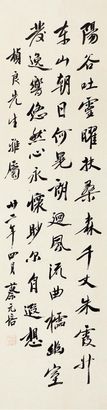 陽谷吐靈曜扶桑森千丈朱霞升
東山朝日何晃朗迴風流曲櫺幽室
發逸響悠然心永懷眇尒自遐想
良先生雅屬 年四月 蔡元培